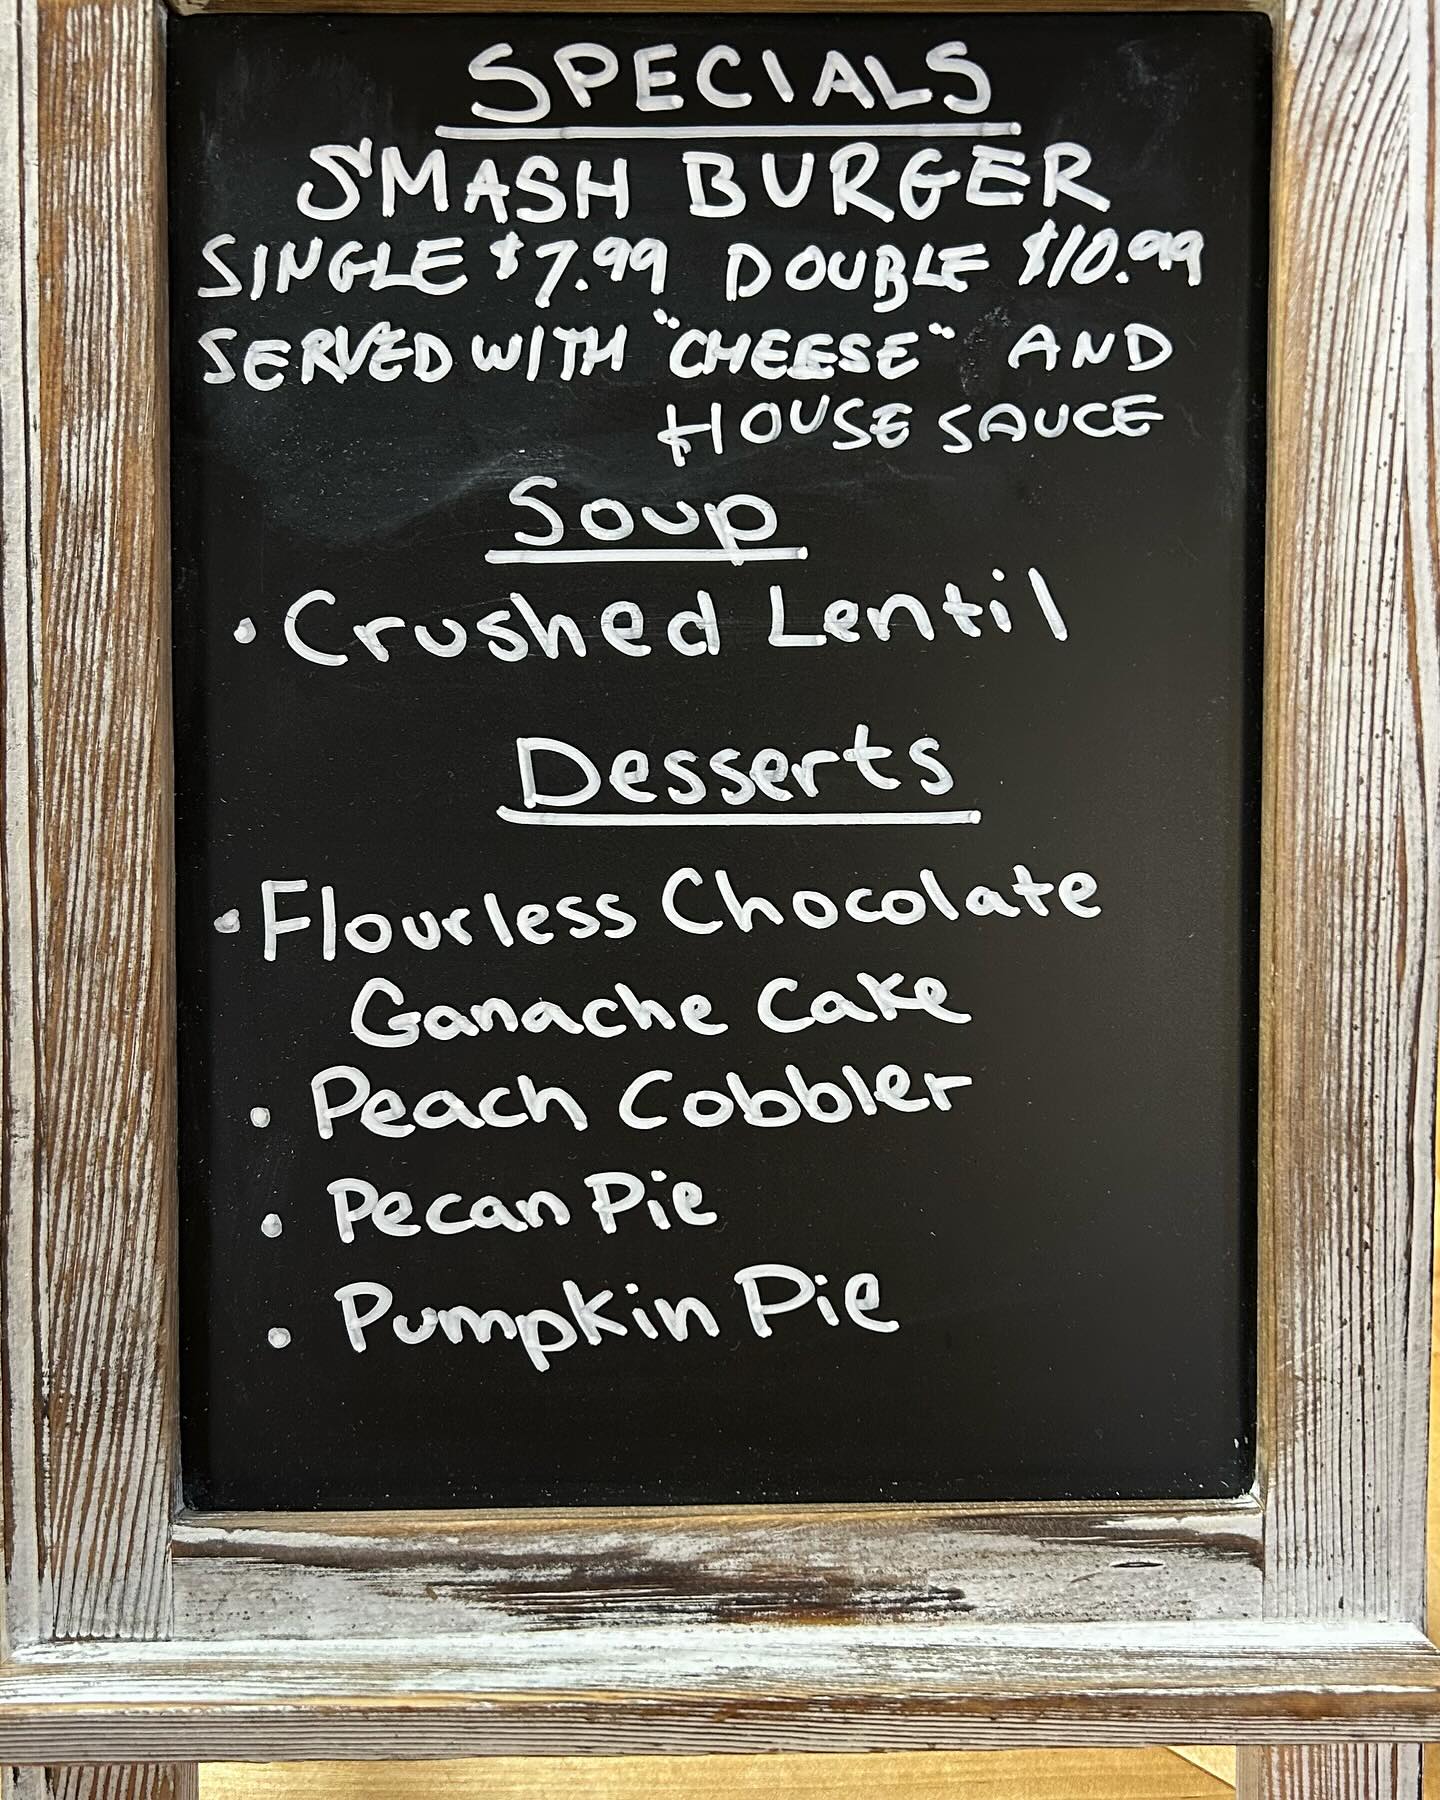 SPECIALS
SMASH BURGER
SINGLE $7.99 DOUBLE $10.99
SERVED WITH "CHEESE" AND
HOUSE SAUCE
Soup
• Crushed Lentil
Desserts
• Flourless Chocolate
Ganache Cake
• Peach Cobbler
• Pecan Pie
• Pumpkin Pie